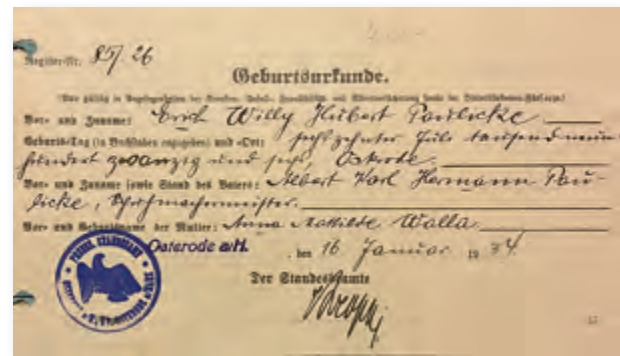 Register-Nr. 85/26
Geburtsurkunde.
(Nur gültig in Angelegenheiten der
Vor- und Zuname: Erich Willy Hubert Paulicke
Geburts-Tag (in Buchstaben angegeben) und -Ort: sechzehnter Juli tausend neun
hundert zwanzig und sechs, Osterode
Vor- und Zuname sowie Stand des Vaters: Albert Karl Hermann Pau-
licke, Schuhmachermeister.
Vor- und Geburtsname der Mutter: Anna Mathilde Walla.
Osterode a/H. , den 16 Januar 1934.
Der Standesbeamte